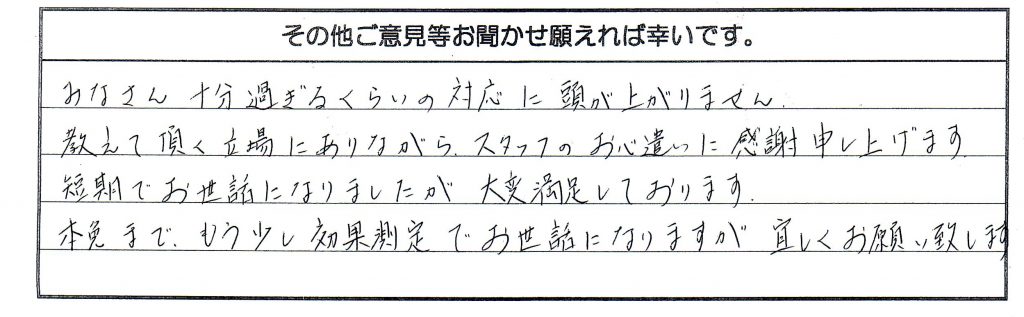 その他ご意見等お聞かせ願えれば幸いです。
みなさん 十分過ぎるくらいの対応に頭が上がりません.
教えて頂く立場にありながら、スタッフのお心遣いに感謝申し上げます.
短期でお世話になりましたが 大変満足しております.
本免まで、もう少し効果測定でお世話になりますが 宜しくお願い致します